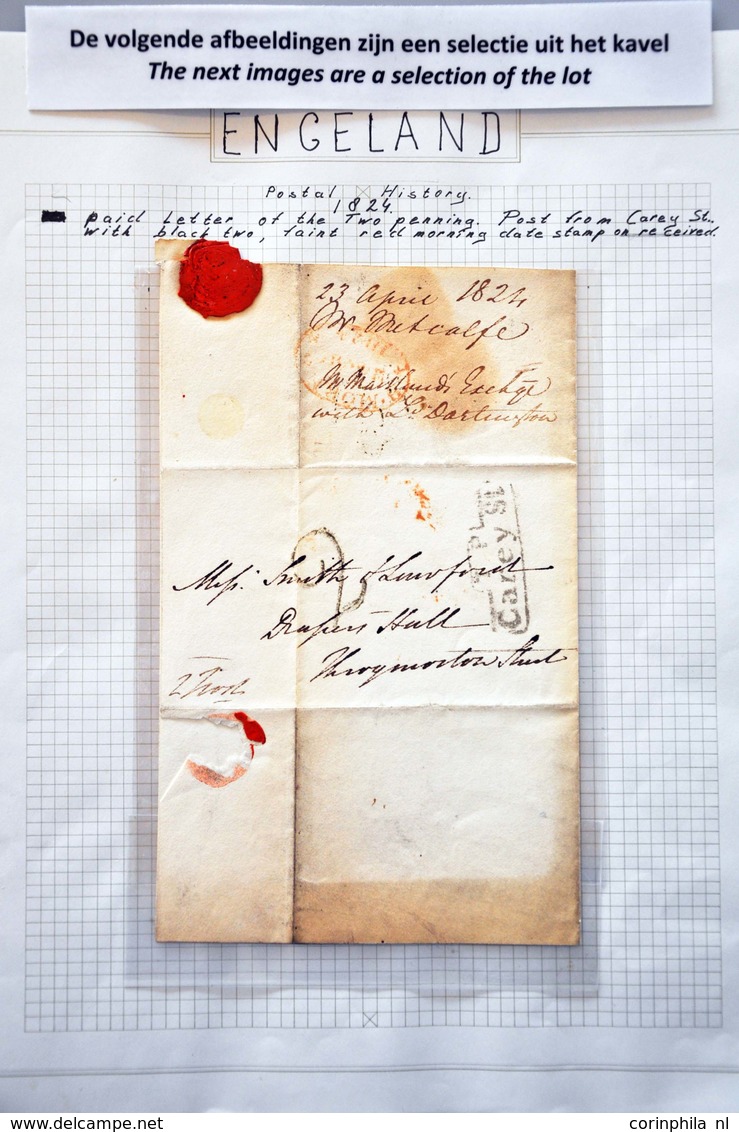 De volgende afbeeldingen zijn een selectie uit het kavel
The next images are a selection of the lot
ENGELAND
Postal History.
1824.
paid Letter of the Two penning. Post from Carey St..
with black two, faint red morning date stamp on received.
23 April 1824
Mr Metcalfe
Mr Maitland's Exchge
with Ld Darlington
2
T.P
Carey St
Messrs Smith & Lawford
Drapers Hall
Throgmorton Street
2
corinphila nl